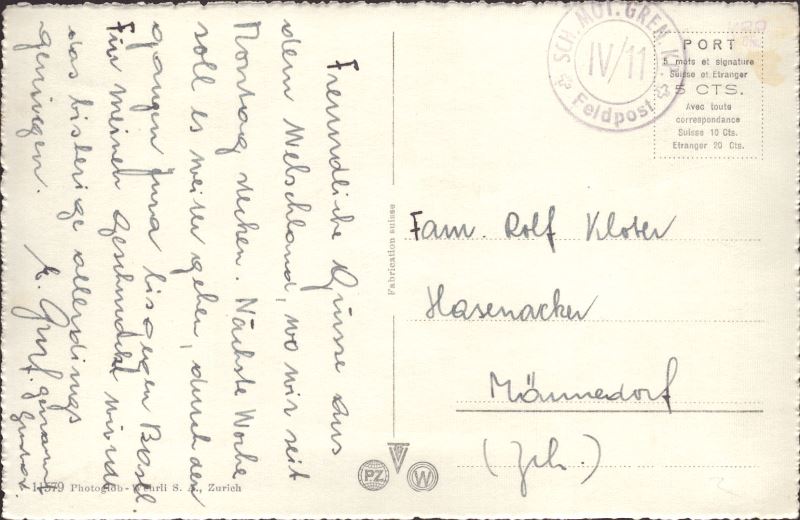 Freundliche Grüsse aus
dem Welschland, wo wir seit
Montag stecken. Nächste Woche
soll es weiter gehen, durch den
ganzen Jura bis gegen Basel.
Für meinen Geschmack würde
das bisherige allerdings
genügen.
SCH. MOT. GREN. KP.
IV/11
Feldpost
PORT
5 mots et signature
Suisse et Etranger
5 CTS.
Avec toute
correspondance
Suisse 10 Cts.
Etranger 20 Cts.
Fabrication suisse
Fam. Rolf Kloter
Hasenacker
Männedorf
(Zch.)
P.Z.
W
11579 Photoglob-Wehrli S. A., Zurich